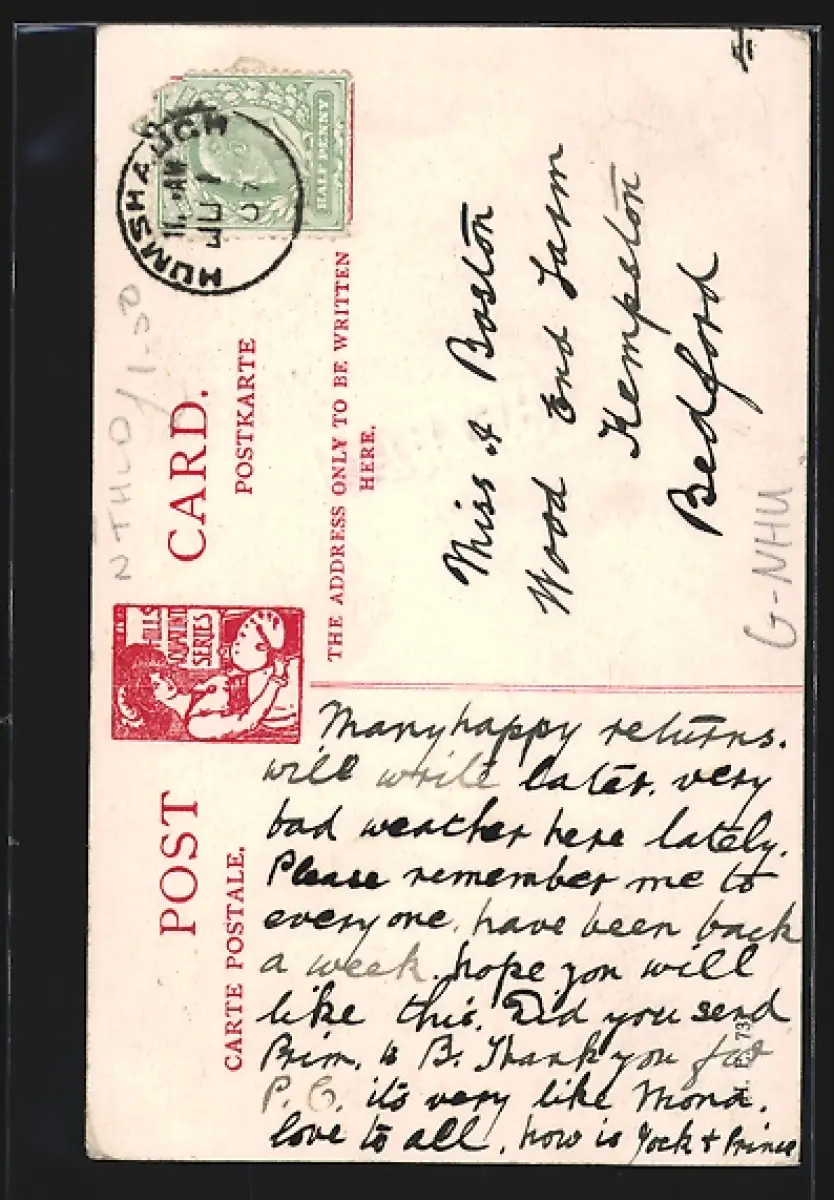 HUMSHAUGH
JU 1
07
HALF PENNY
POST CARD.
CARTE POSTALE.
POSTKARTE
THE ADDRESS ONLY TO BE WRITTEN
HERE.
HILLS
QUAINT
SERIES
NTHLD/1-50
G-NHU
Miss A Boston
Wood End Farm
Kempston
Bedford
Many happy returns.
will write later. very
bad weather here lately.
Please remember me to
everyone. have been back
a week. hope you will
like this. Did you send
Prim. to B. Thank you for
P.C. its very like Mona.
love to all, how is Jock + Prince
73